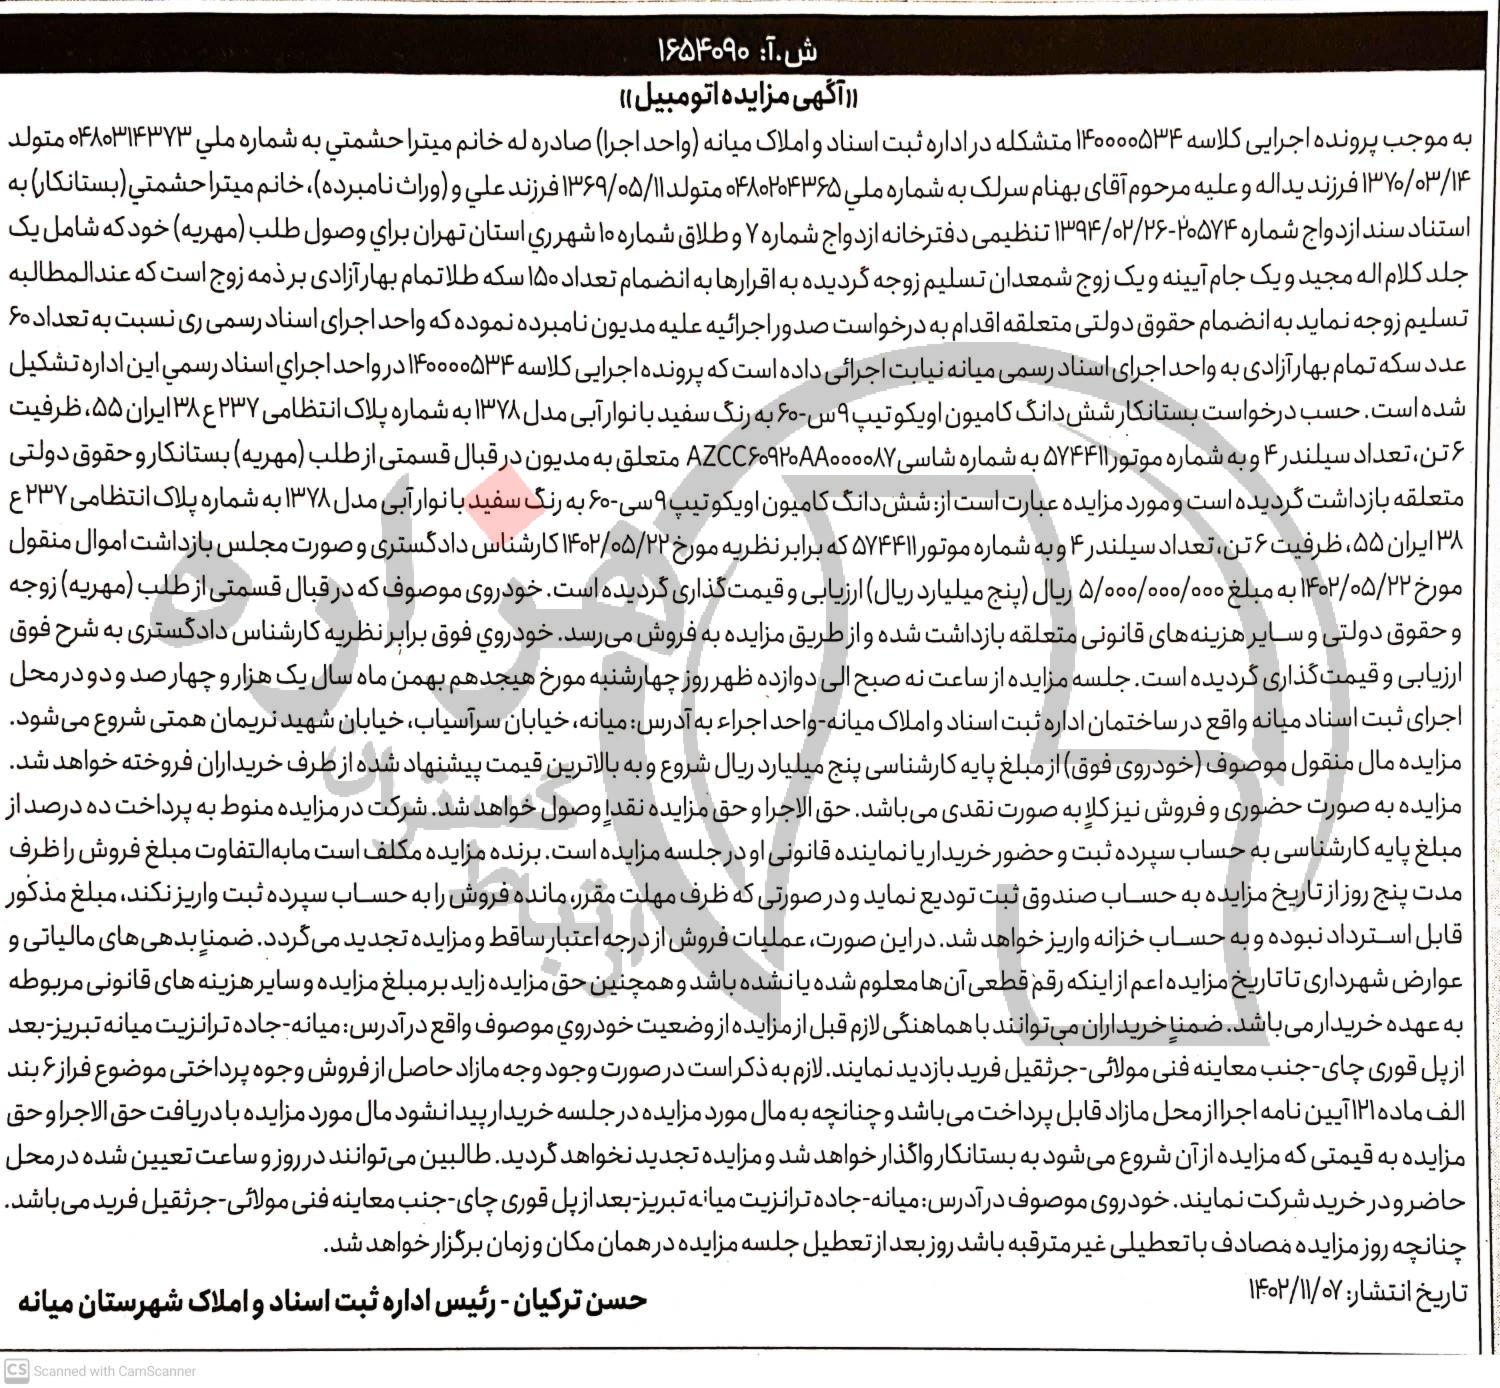 ش.آ: ۱۶۵۴۰۹۰
«آگهی مزایده اتومبیل»
به موجب پرونده اجرایی کلاسه ۱۴۰۰۰۰۵۳۴ متشکله در اداره ثبت اسناد و املاک میانه (واحد اجرا) صادره له خانم میترا حشمتي به شماره ملي ۰۴۸۰۳۱۴۳۷۳ متولد
۱۳۷۰/۰۳/۱۴ فرزند یداله و علیه مرحوم آقای بهنام سرلک به شماره ملي ۰۴۸۰۲۰۴۳۶۵ متولد ۱۳۶۹/۰۵/۱۱ فرزند علي و (وراث نامبرده)، خانم میترا حشمتي (بستانکار) به
استناد سند ازدواج شماره ۲۰۵۷۴-۱۳۹۴/۰۲/۲۶ تنظیمی دفترخانه ازدواج شماره ۷ و طلاق شماره ۱۰ شهر ري استان تهران براي وصول طلب (مهریه) خود که شامل یک
جلد کلام اله مجید و یک جام آیینه و یک زوج شمعدان تسلیم زوجه گردیده به اقرارها به انضمام تعداد ۱۵۰ سکه طلا تمام بهار آزادی بر ذمه زوج است که عندالمطالبه
تسلیم زوجه نماید به انضمام حقوق دولتی متعلقه اقدام به درخواست صدور اجرائیه علیه مدیون نامبرده نموده که واحد اجرای اسناد رسمی ری نسبت به تعداد ۶۰
عدد سکه تمام بهار آزادی به واحد اجرای اسناد رسمی میانه نیابت اجرائی داده است که پرونده اجرایی کلاسه ۱۴۰۰۰۰۵۳۴ در واحد اجراي اسناد رسمي این اداره تشکیل
شده است. حسب درخواست بستانکار شش دانگ کامیون اویکو تیپ ۹س-۶۰ به رنگ سفید با نوار آبی مدل ۱۳۷۸ به شماره پلاک انتظامی ۲۳۷ ع ۳۸ ایران ۵۵، ظرفیت
۶ تن، تعداد سیلندر ۴ و به شماره موتور ۵۷۴۴۱۱ به شماره شاسی AZCC۶۰۹۲۰AA۰۰۰۰۸۷ متعلق به مدیون در قبال قسمتی از طلب (مهریه) بستانکار و حقوق دولتی
متعلقه بازداشت گردیده است و مورد مزایده عبارت است از: شش دانگ کامیون اویکو تیپ ۹سی-۶۰ به رنگ سفید با نوار آبی مدل ۱۳۷۸ به شماره پلاک انتظامی ۲۳۷ ع
۳۸ ایران ۵۵، ظرفیت ۶ تن، تعداد سیلندر ۴ و به شماره موتور ۵۷۴۴۱۱ که برابر نظریه مورخ ۱۴۰۲/۰۵/۲۲ کارشناس دادگستری و صورت مجلس بازداشت اموال منقول
مورخ ۱۴۰۲/۰۵/۲۲ به مبلغ ۵/۰۰۰/۰۰۰/۰۰۰ ریال (پنج میلیارد ریال) ارزیابی و قیمت گذاری گردیده است. خودروی موصوف که در قبال قسمتی از طلب (مهریه) زوجه
و حقوق دولتی و سایر هزینه‌های قانونی متعلقه بازداشت شده و از طریق مزایده به فروش می‌رسد. خودروي فوق برابر نظریه کارشناس دادگستری به شرح فوق
ارزیابی و قیمت گذاری گردیده است. جلسه مزایده از ساعت نه صبح الی دوازده ظهر روز چهارشنبه مورخ هیجدهم بهمن ماه سال یک هزار و چهار صد و دو در محل
اجرای ثبت اسناد میانه واقع در ساختمان اداره ثبت اسناد و املاک میانه-واحد اجراء به آدرس: میانه، خیابان سرآسیاب، خیابان شهید نریمان همتی شروع می شود.
مزایده مال منقول موصوف (خودروی فوق) از مبلغ پایه کارشناسی پنج میلیارد ریال شروع و به بالاترین قیمت پیشنهاد شده از طرف خریداران فروخته خواهد شد.
مزایده به صورت حضوری و فروش نیز کلاٍ به صورت نقدی می‌باشد. حق الاجرا و حق مزایده نقداٍ وصول خواهد شد. شرکت در مزایده منوط به پرداخت ده درصد از
مبلغ پایه کارشناسی به حساب سپرده ثبت و حضور خریدار یا نماینده قانونی او در جلسه مزایده است. برنده مزایده مکلف است مابه‌التفاوت مبلغ فروش را ظرف
مدت پنج روز از تاریخ مزایده به حساب صندوق ثبت تودیع نماید و در صورتی که ظرف مهلت مقرر، مانده فروش را به حساب سپرده ثبت واریز نکند، مبلغ مذکور
قابل استرداد نبوده و به حساب خزانه واریز خواهد شد. در این صورت، عملیات فروش از درجه اعتبار ساقط و مزایده تجدید می گردد. ضمناٍ بدهی‌های مالیاتی و
عوارض شهرداری تا تاریخ مزایده اعم از اینکه رقم قطعی آن‌ها معلوم شده یا نشده باشد و همچنین حق مزایده زاید بر مبلغ مزایده و سایر هزینه های قانونی مربوطه
به عهده خریدار می‌باشد. ضمناٍ خریداران می‌توانند با هماهنگی لازم قبل از مزایده از وضعیت خودروي موصوف واقع در آدرس: میانه-جاده ترانزیت میانه تبریز-بعد
از پل قوری چای-جنب معاینه فنی مولائی-جرثقیل فرید بازدید نمایند. لازم به ذکر است در صورت وجود وجه مازاد حاصل از فروش وجوه پرداختی موضوع فراز ۶ بند
الف ماده ۱۲۱ آیین نامه اجرا از محل مازاد قابل پرداخت می‌باشد و چنانچه به مال مورد مزایده در جلسه خریدار پیدا نشود مال مورد مزایده با دریافت حق الاجرا و حق
مزایده به قیمتی که مزایده از آن شروع می‌شود به بستانکار واگذار خواهد شد و مزایده تجدید نخواهد گردید. طالبین می‌توانند در روز و ساعت تعیین شده در محل
حاضر و در خرید شرکت نمایند. خودروی موصوف در آدرس: میانه-جاده ترانزیت میانه تبریز-بعد از پل قوری چای-جنب معاینه فنی مولائی-جرثقیل فرید می‌باشد.
چنانچه روز مزایده مصادف با تعطیلی غیر مترقبه باشد روز بعد از تعطیل جلسه مزایده در همان مکان و زمان برگزار خواهد شد.
تاریخ انتشار: ۱۴۰۲/۱۱/۰۷
حسن ترکیان - رئیس اداره ثبت اسناد و املاک شهرستان میانه
هزاره
گستران
ارتباط
CS Scanned with CamScanner